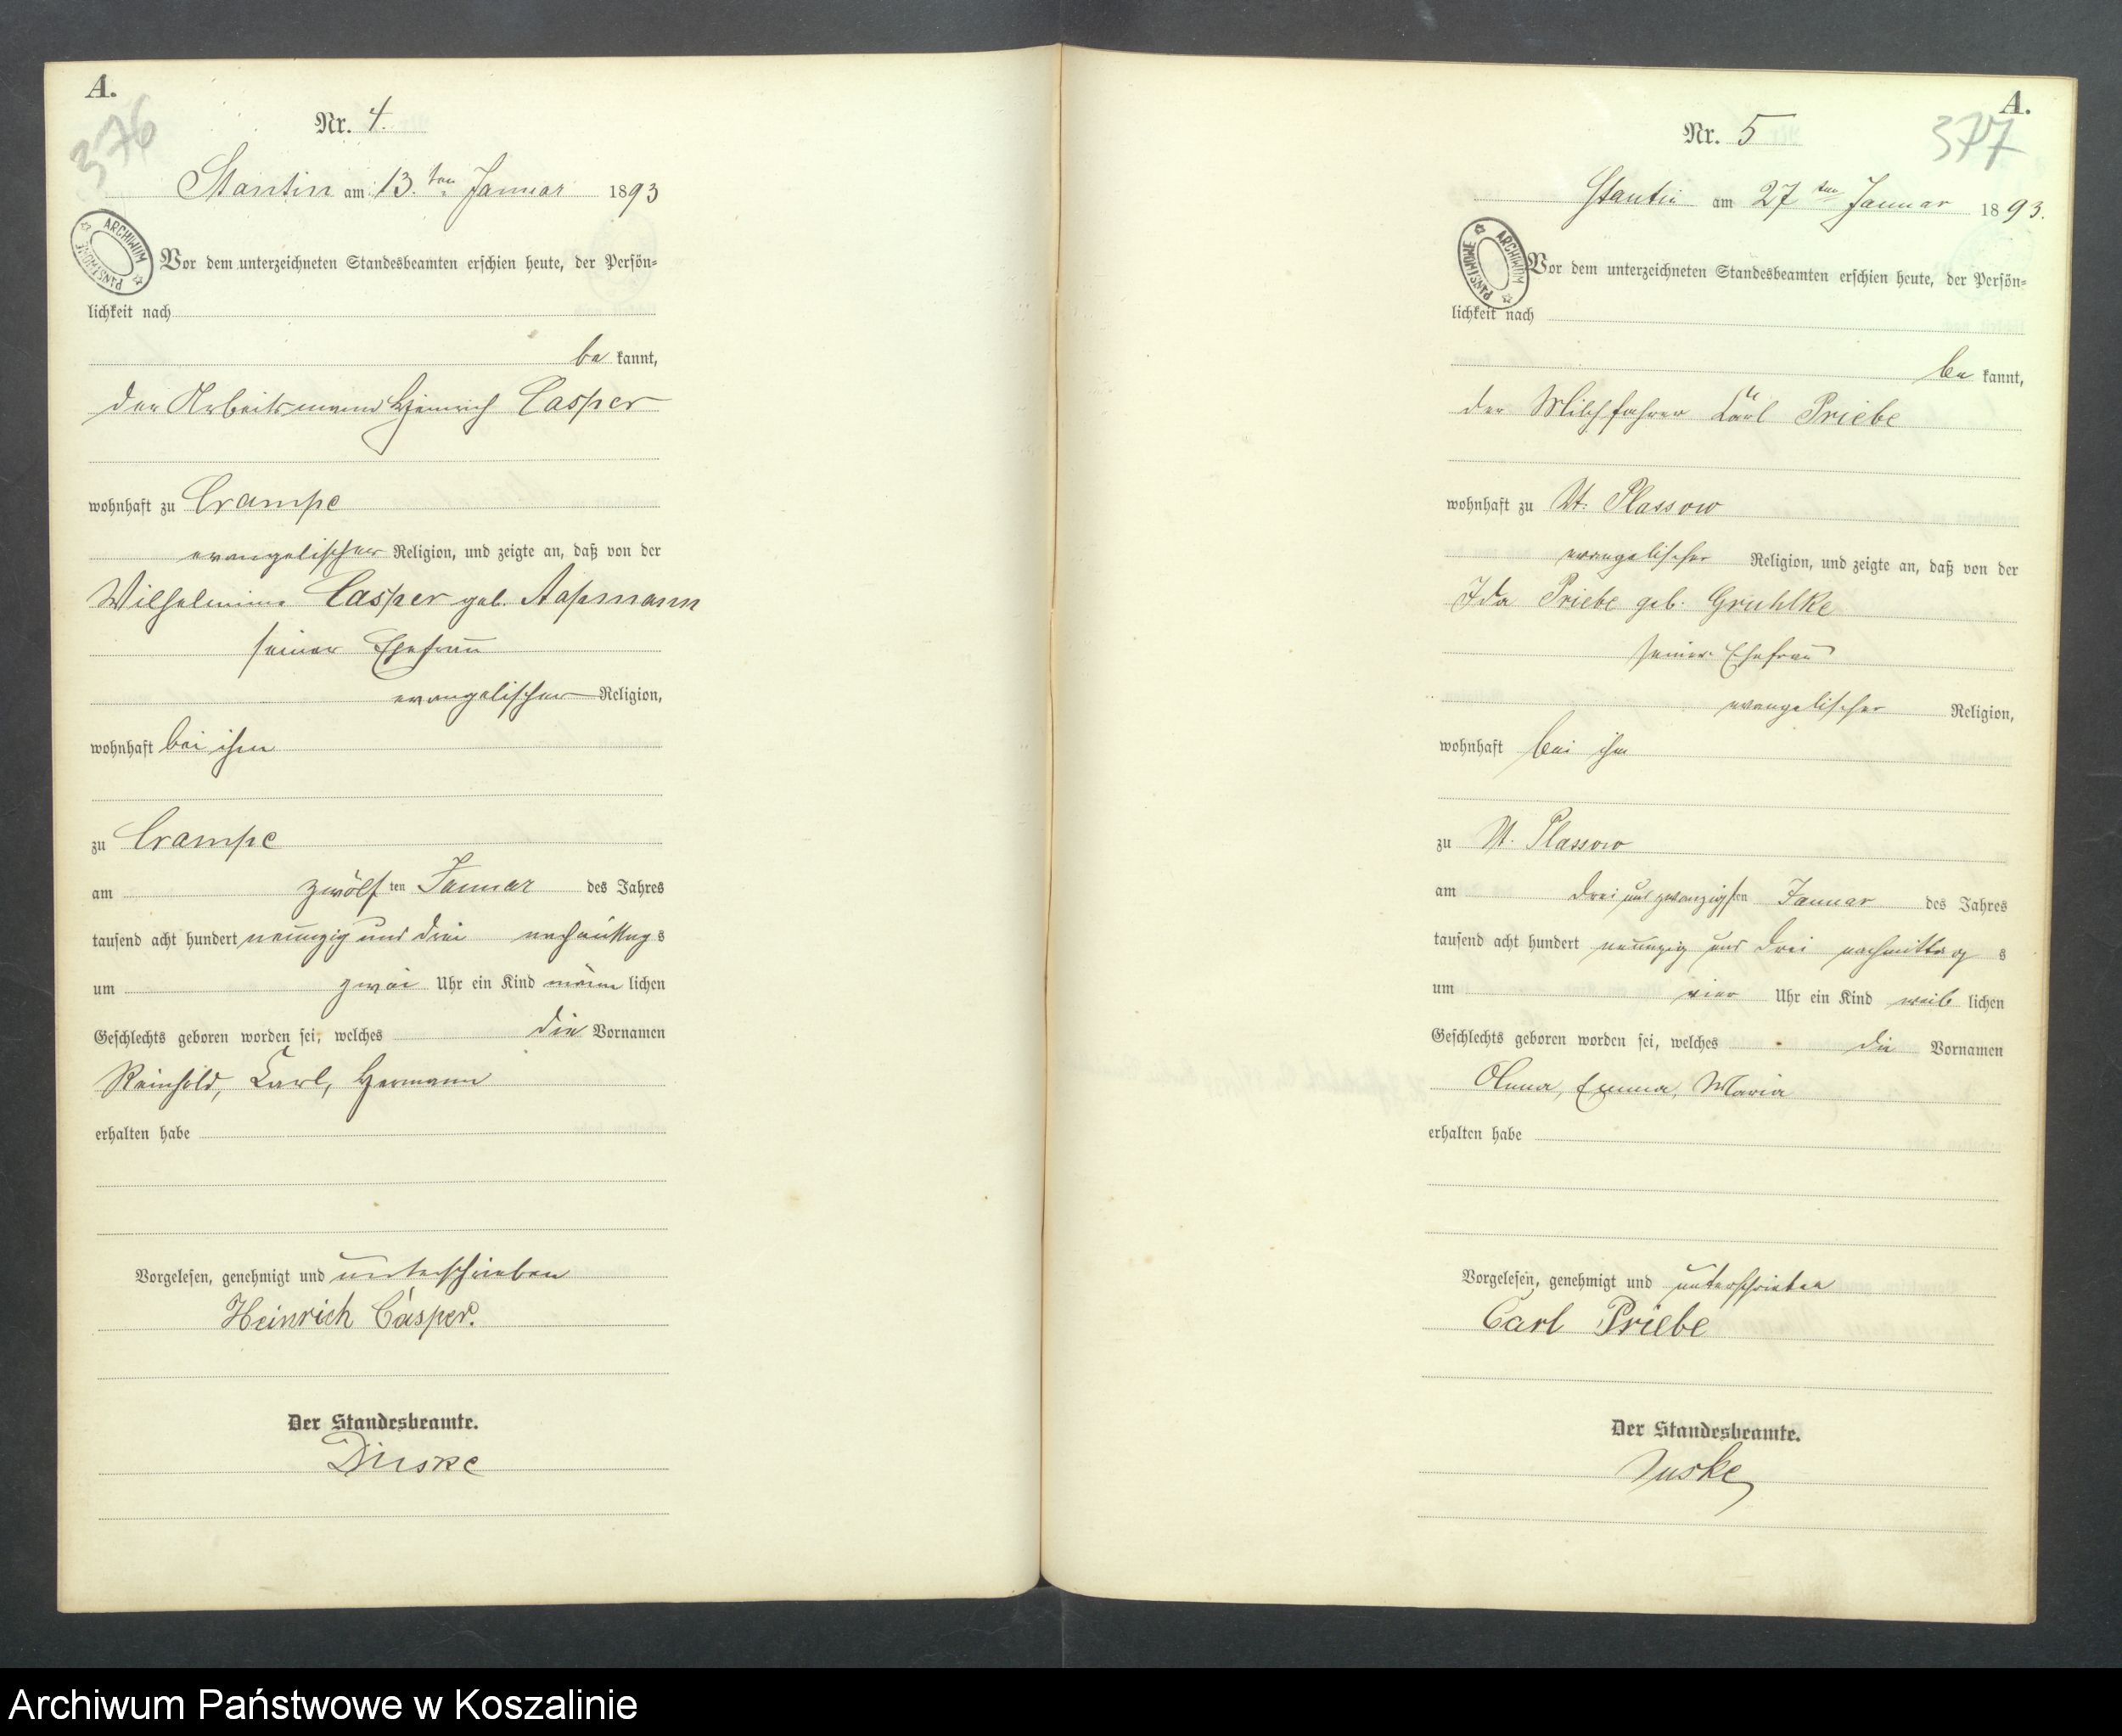 A.
376
Nr. 4.
Stantin am 13. ten Januar 1893
ARCHIWUM PAŃSTWOWE
Vor dem unterzeichneten Standesbeamten erschien heute, der Persön=
lichkeit nach
be kannt,
der Arbeitsmann Heinrich Casper
wohnhaft zu Crampe
evangelischer Religion, und zeigte an, daß von der
Wilhelmine Casper geb.
seiner Ehefrau
evangelischer Religion,
wohnhaft bei ihm
zu Crampe
am zwölf ten Januar des Jahres
tausend acht hundert neunzig und drei nachmittag s
um zwei Uhr ein Kind männ lichen
Geschlechts geboren worden sei, welches die Vornamen
Reinhold, Carl, Hermann
erhalten habe
Vorgelesen, genehmigt und unterschrieben
Heinrich Casper.
Der Standesbeamte.
A.
377
Nr. 5
Stantin am 27 ten Januar 1893.
ARCHIWUM PAŃSTWOWE
Vor dem unterzeichneten Standesbeamten erschien heute, der Persön=
lichkeit nach
be kannt,
der Milchfahrer Carl Priebe
wohnhaft zu Kl. Plassow
evangelischer Religion, und zeigte an, daß von der
Ida Priebe geb. Gruhlke
seiner Ehefrau
evangelischer Religion,
wohnhaft bei ihm
zu Kl. Plassow
am drei und zwanzigsten Januar des Jahres
tausend acht hundert neunzig und drei nachmittag s
um vier Uhr ein Kind weib lichen
Geschlechts geboren worden sei, welches die Vornamen
Anna, Emma, Maria
erhalten habe
Vorgelesen, genehmigt und unterschrieben
Carl Priebe
Der Standesbeamte.
Archiwum Państwowe w Koszalinie